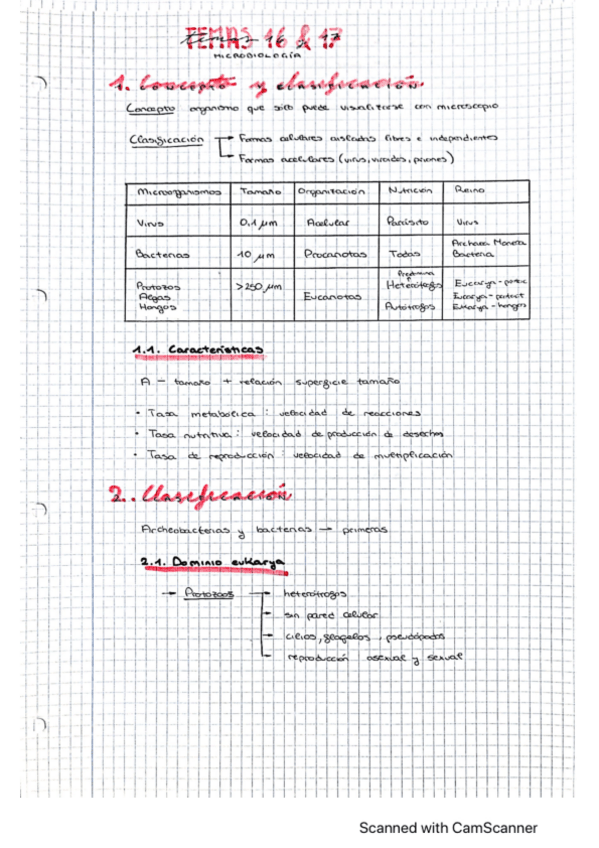 TEMAS 16 & 17
MICROBIOLOGÍA
1. Concepto y clasificación
Concepto organismo que sólo puede visualizarse con microscopio
Clasificación → Formas celulares aisladas libres e independientes
→ Formas acelulares (virus, viroides, priones)
Microorganismos Tamaño Organización Nutrición Reino
Virus 0,1 μm Acelular Parásito Virus
Bacterias 10 μm Procariotas Todas Archaea Monera Bacteria
Protozoos Algas Hongos >250 μm Eucariotas Heterótrofos Autótrofos Eucarya - Eucarya - protoct Eukarya - hongos
1.1. Características
A - tamaño + relación superficie tamaño
• Tasa metabólica : velocidad de reacciones
• Tasa nutritiva : velocidad de producción de desechos
• Tasa de reproducción : velocidad de multiplicación
2. Clasificación
Archeobacterias y bacterias → primeras
2.1. Dominio eukarya
→ Protozoos → heterótrofos
→ sin pared celular
→ cilios, flagelos, pseudópodos
→ reproducción asexual y sexual
Scanned with CamScanner